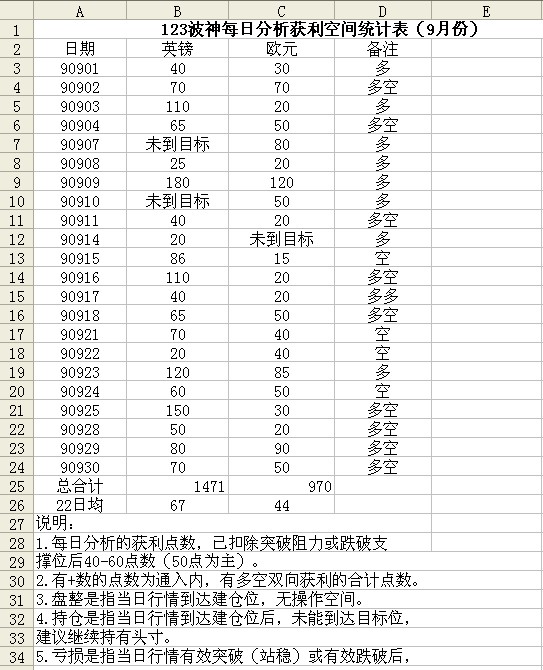 A B C D E
1 123波神每日分析获利空间统计表（9月份）
2 日期 英镑 欧元 备注
3 90901 40 30 多
4 90902 70 70 多空
5 90903 110 20 多
6 90904 65 50 多空
7 90907 未到目标 80 多
8 90908 25 20 多
9 90909 180 120 多
10 90910 未到目标 50 多
11 90911 40 20 多空
12 90914 20 未到目标 多
13 90915 86 15 空
14 90916 110 20 多空
15 90917 40 20 多多
16 90918 65 50 多空
17 90921 70 40 空
18 90922 20 40 空
19 90923 120 85 多
20 90924 60 50 空
21 90925 150 30 多空
22 90928 50 20 多空
23 90929 80 90 多空
24 90930 70 50 多空
25 总合计 1471 970
26 22日均 67 44
27 说明：
28 1.每日分析的获利点数，己扣除突破阻力或跌破支
29 撑位后40-60点数（50点为主）。
30 2.有+数的点数为通入内，有多空双向获利的合计点数。
31 3.盘整是指当日行情到达建仓位，无操作空间。
32 4.持仓是指当日行情到达建仓位后，未能到达目标位，
33 建议继续持有头寸。
34 5.亏损是指当日行情有效突破（站稳）或有效跌破后，